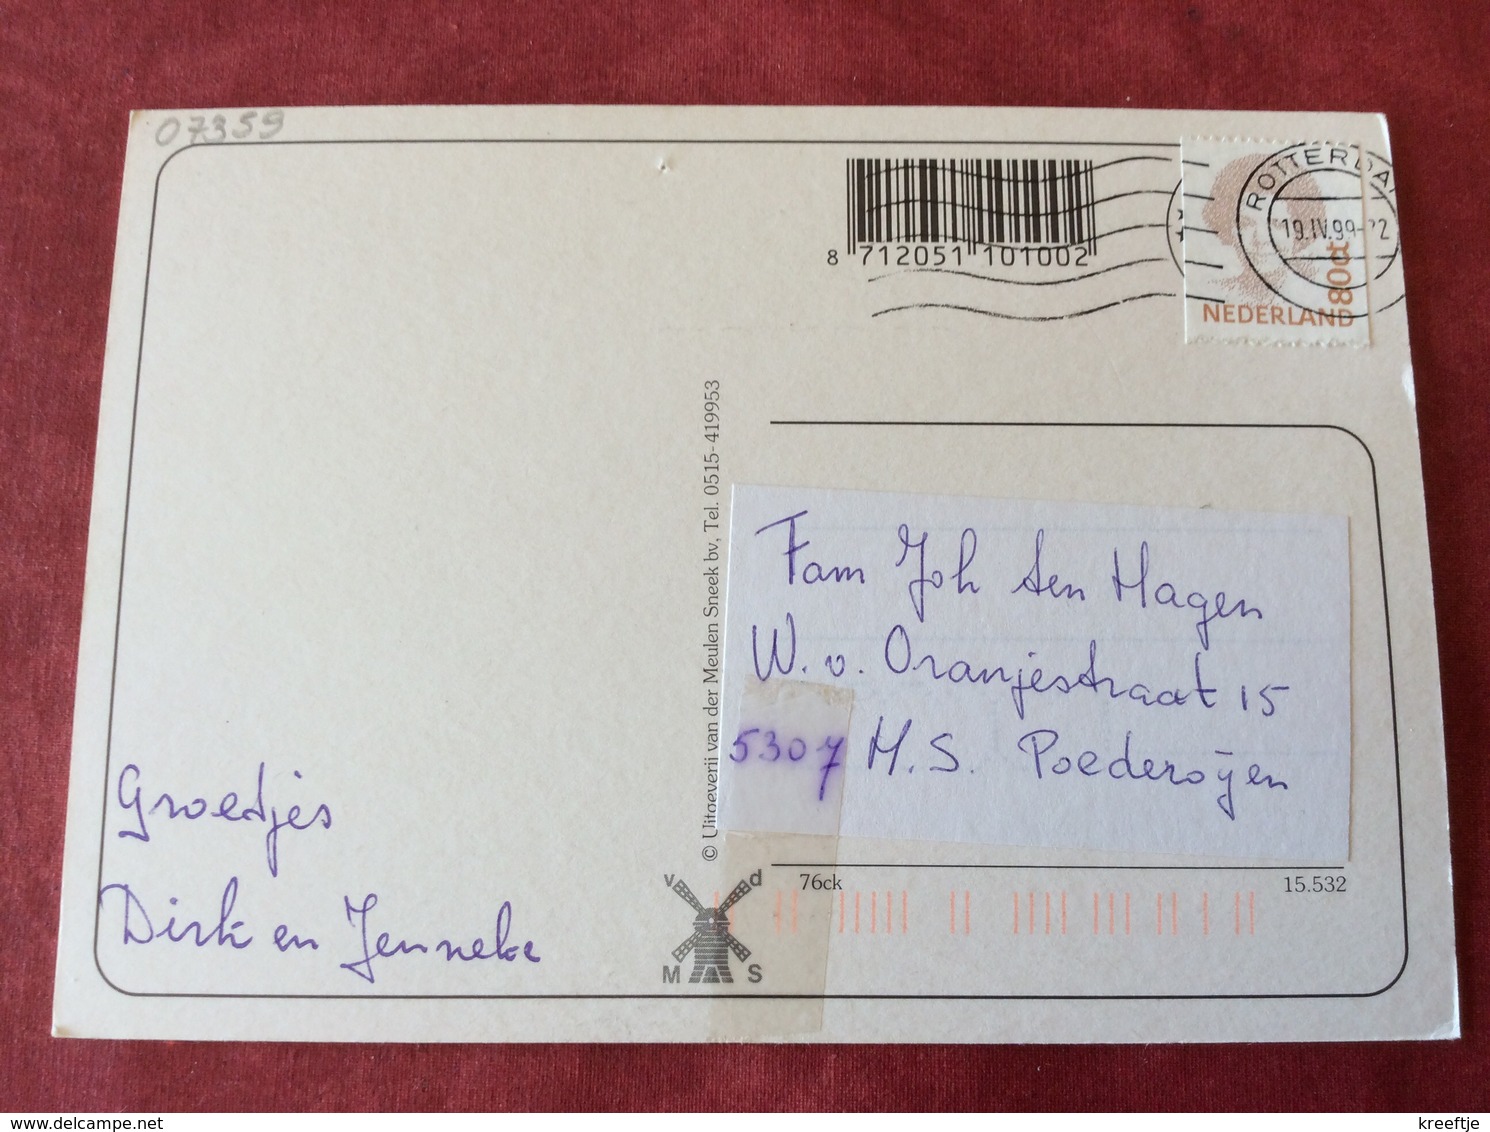 07359
8 712051 101002
ROTTERDA
19.IV.99-22
80ct
NEDERLAND
© Uitgeverij van der Meulen Sneek bv, Tel. 0515-419953
Fam Joh ten Hagen
W. v. Oranjestraat 15
5307 M.S. Poederoijen
Groetjes
Dirk en Jenneke
v d
M S
76ck
15.532
delcampe.net
kreeftje